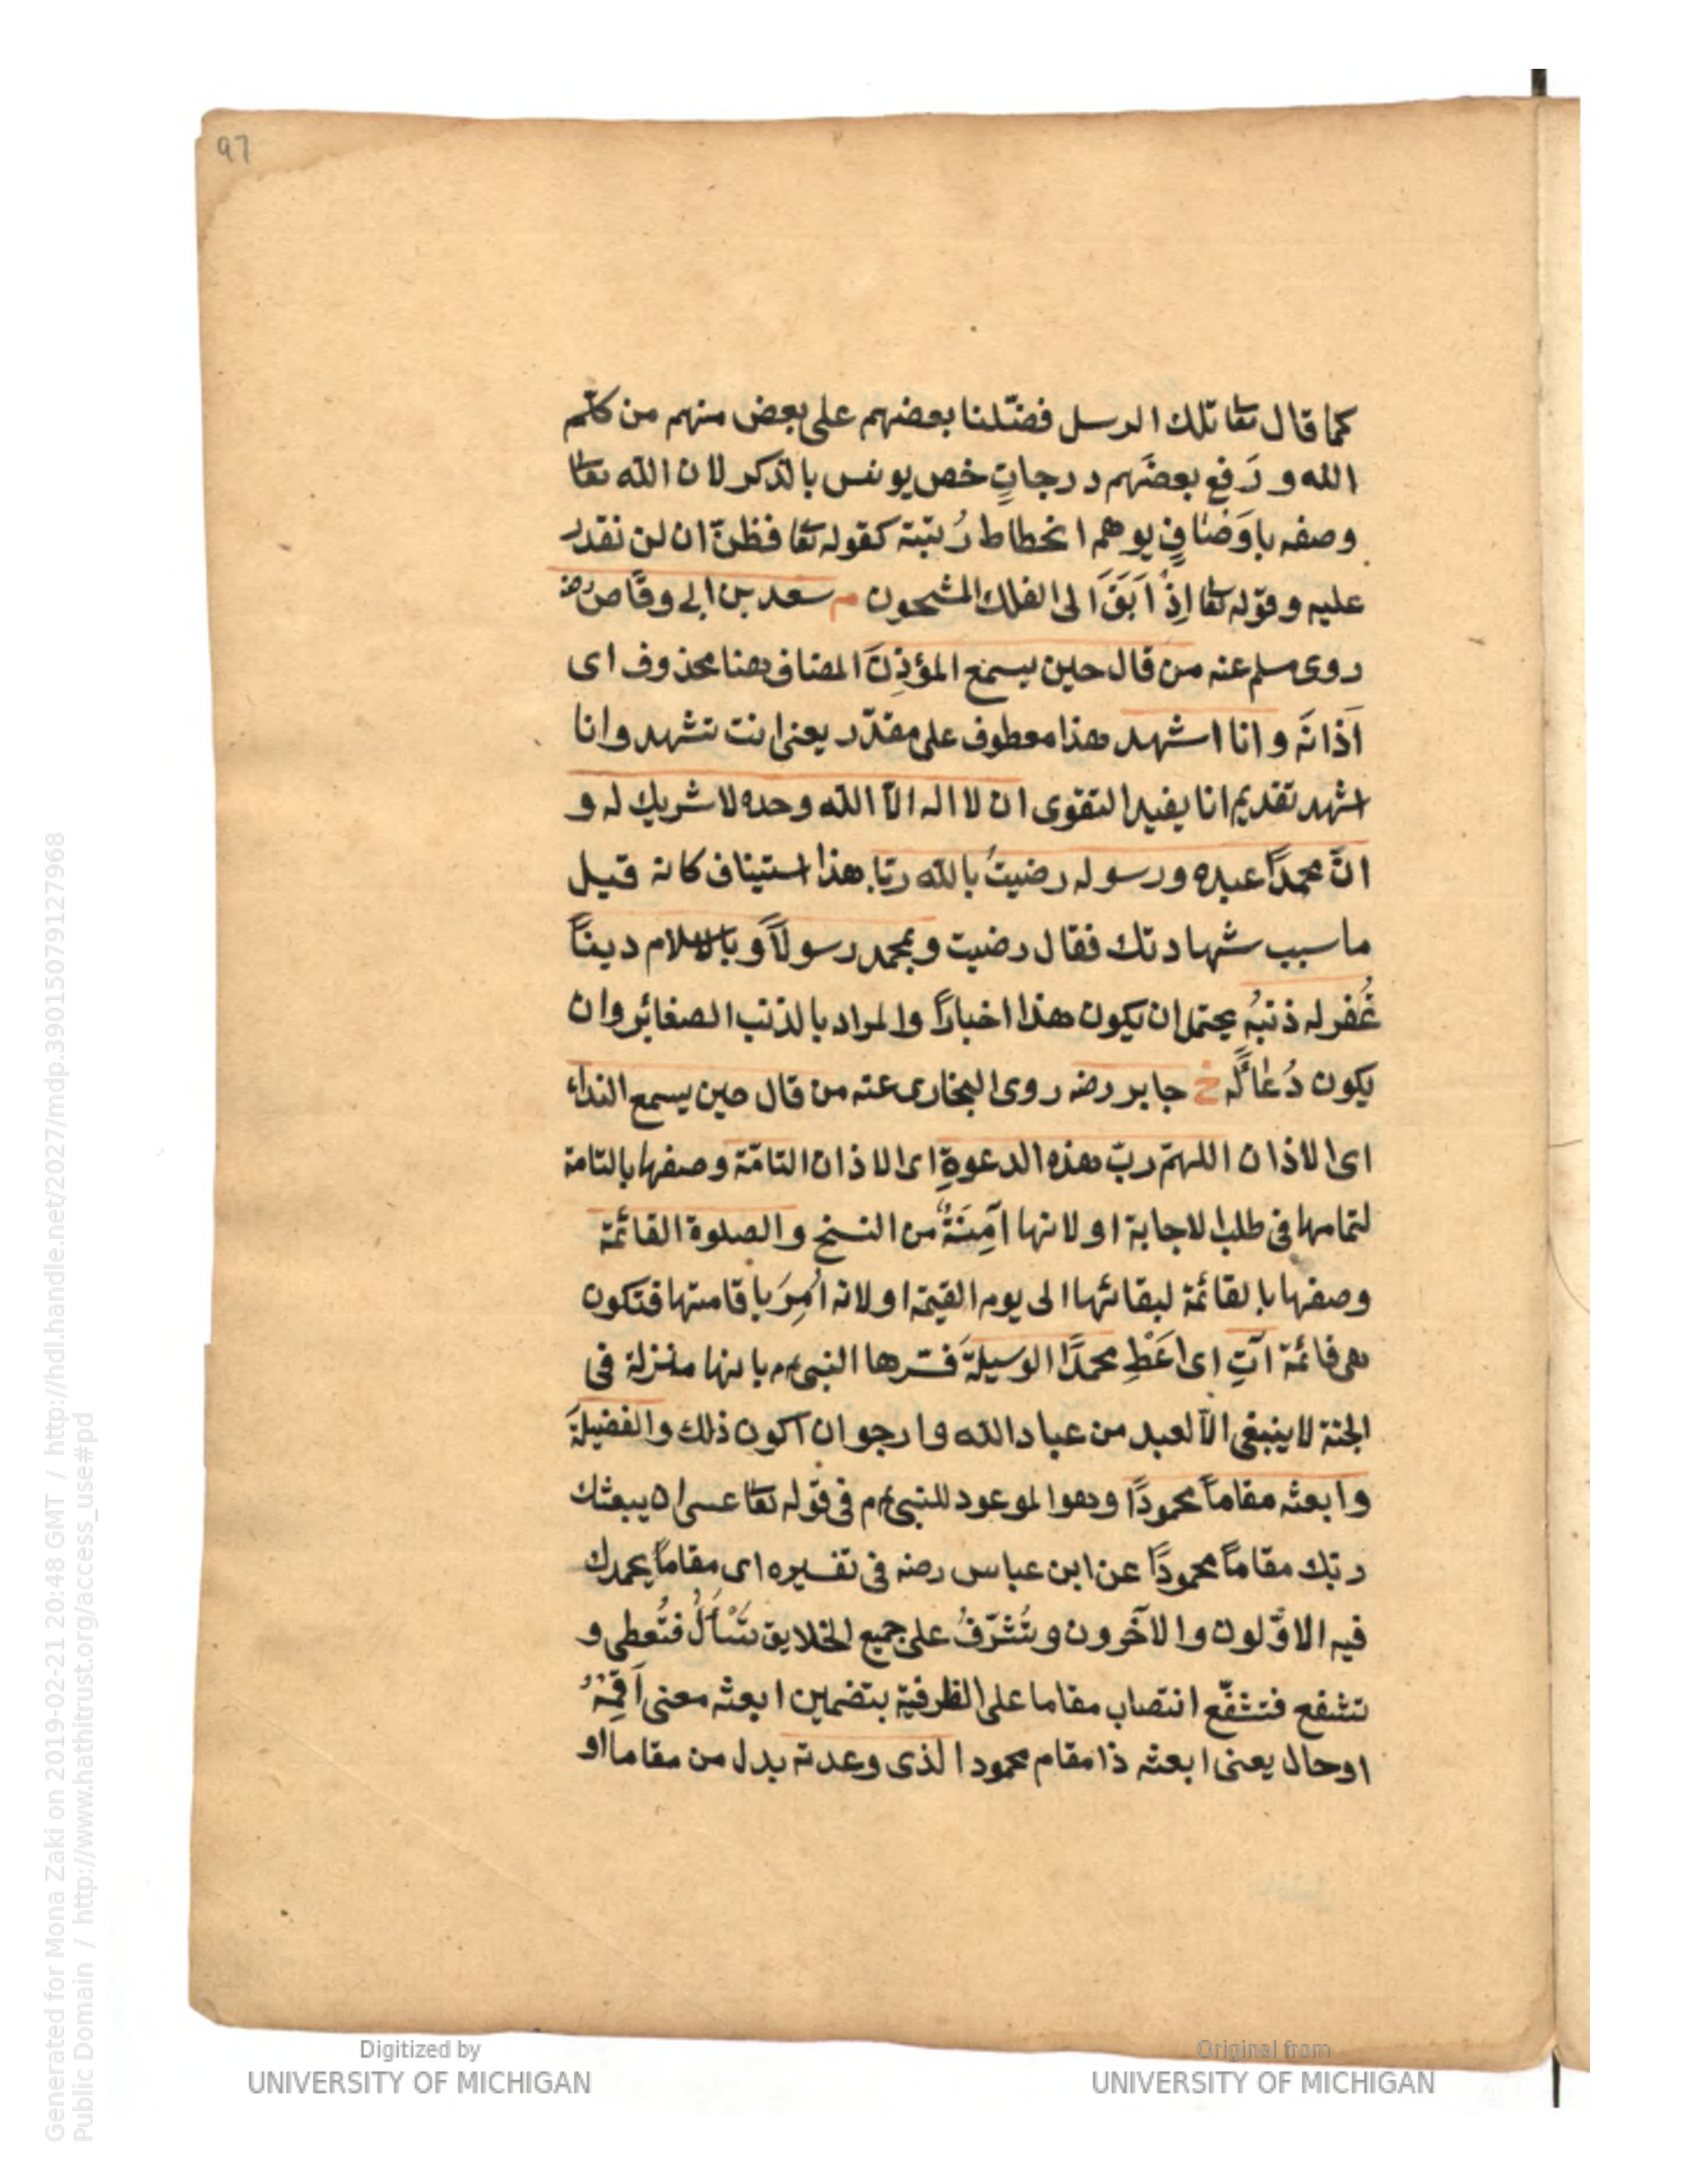 97
كما قال تعا تلك الرسل فضّلنا بعضهم على بعض منهم من كلّم
الله و رَفع بعضَهم درجاتٍ خص يونس بالذكر لان الله تعا
وصفه باوَصَافٍ يوهم انحطاط رُتبته كقوله تعا فظنّ ان لن نقدر
عليه وقوله تعا اِذْ اَبَقَ الى الفلك المشحون م سعد بن ابى وقّاص رض
روى مسلم عنه من قال حين يسمع المؤذِنَ المضاف هنا محذوف اى
اَذانَه وانا اشهد هذا معطوف على مقدّر يعنى انت تشهد وانا
اشهد تقديم انا يفيد التقوى ان لا اله الاّ الله وحده لا شريك له و
انّ محمدًا عبده ورسوله رضيتُ بالله ربّا هذا استيناف كانه قيل
ما سبب شهادتك فقال رضيت وبمحمد رسولاً وبالاسلام دينًا
غُفر له ذنبُه يحتمل ان يكون هذا اخبارًا والمراد بالذنب الصغائر وان
يكون دُعاءً له خ جابر رضه روى البخارى عنه من قال حين يسمع النداء
اى الاذان اللهمّ ربّ هذه الدعوةِ اى الاذان التامّة وصفها بالتامة
لتمامها فى طلب الاجابة او لانها آمِنَةٌ من النسخ والصلوة القائمة
وصفها بالقائمة لبقائها الى يوم القيمة او لانه اُمِرَ باقامتها فتكون
هى قائمة آتِ اى اَعْطِ محمدًا الوسيلةَ فسرها النبى عم بانها منزلة فى
الجنة لا ينبغى الاّ لعبد من عباد الله وارجو ان اكون ذلك والفضيلةَ
وابعثه مقاماً محمودًا وهو الموعود للنبى عم فى قوله تعا عسى ان يبعثك
ربّك مقاماً محمودًا عن ابن عباس رضه فى تفسيره اى مقاماً يحمدك
فيه الاوّلون والآخرون وتُشَرّفُ على جميع الخلايق تَسْأَلُ فتُعطى و
تشفع فتشفّع انتصاب مقاما على الظرفية بتضمين ابعثه معنى اَقِمْهُ
او حال يعنى ابعثه ذا مقام محمود الذى وعدته بدل من مقاما او
Digitized by
UNIVERSITY OF MICHIGAN
Original from
UNIVERSITY OF MICHIGAN
Generated for Mona Zaki on 2019-02-21 20:48 GMT / http://hdl.handle.net/2027/mdp.39015079127968
Public Domain / http://www.hathitrust.org/access_use#pd